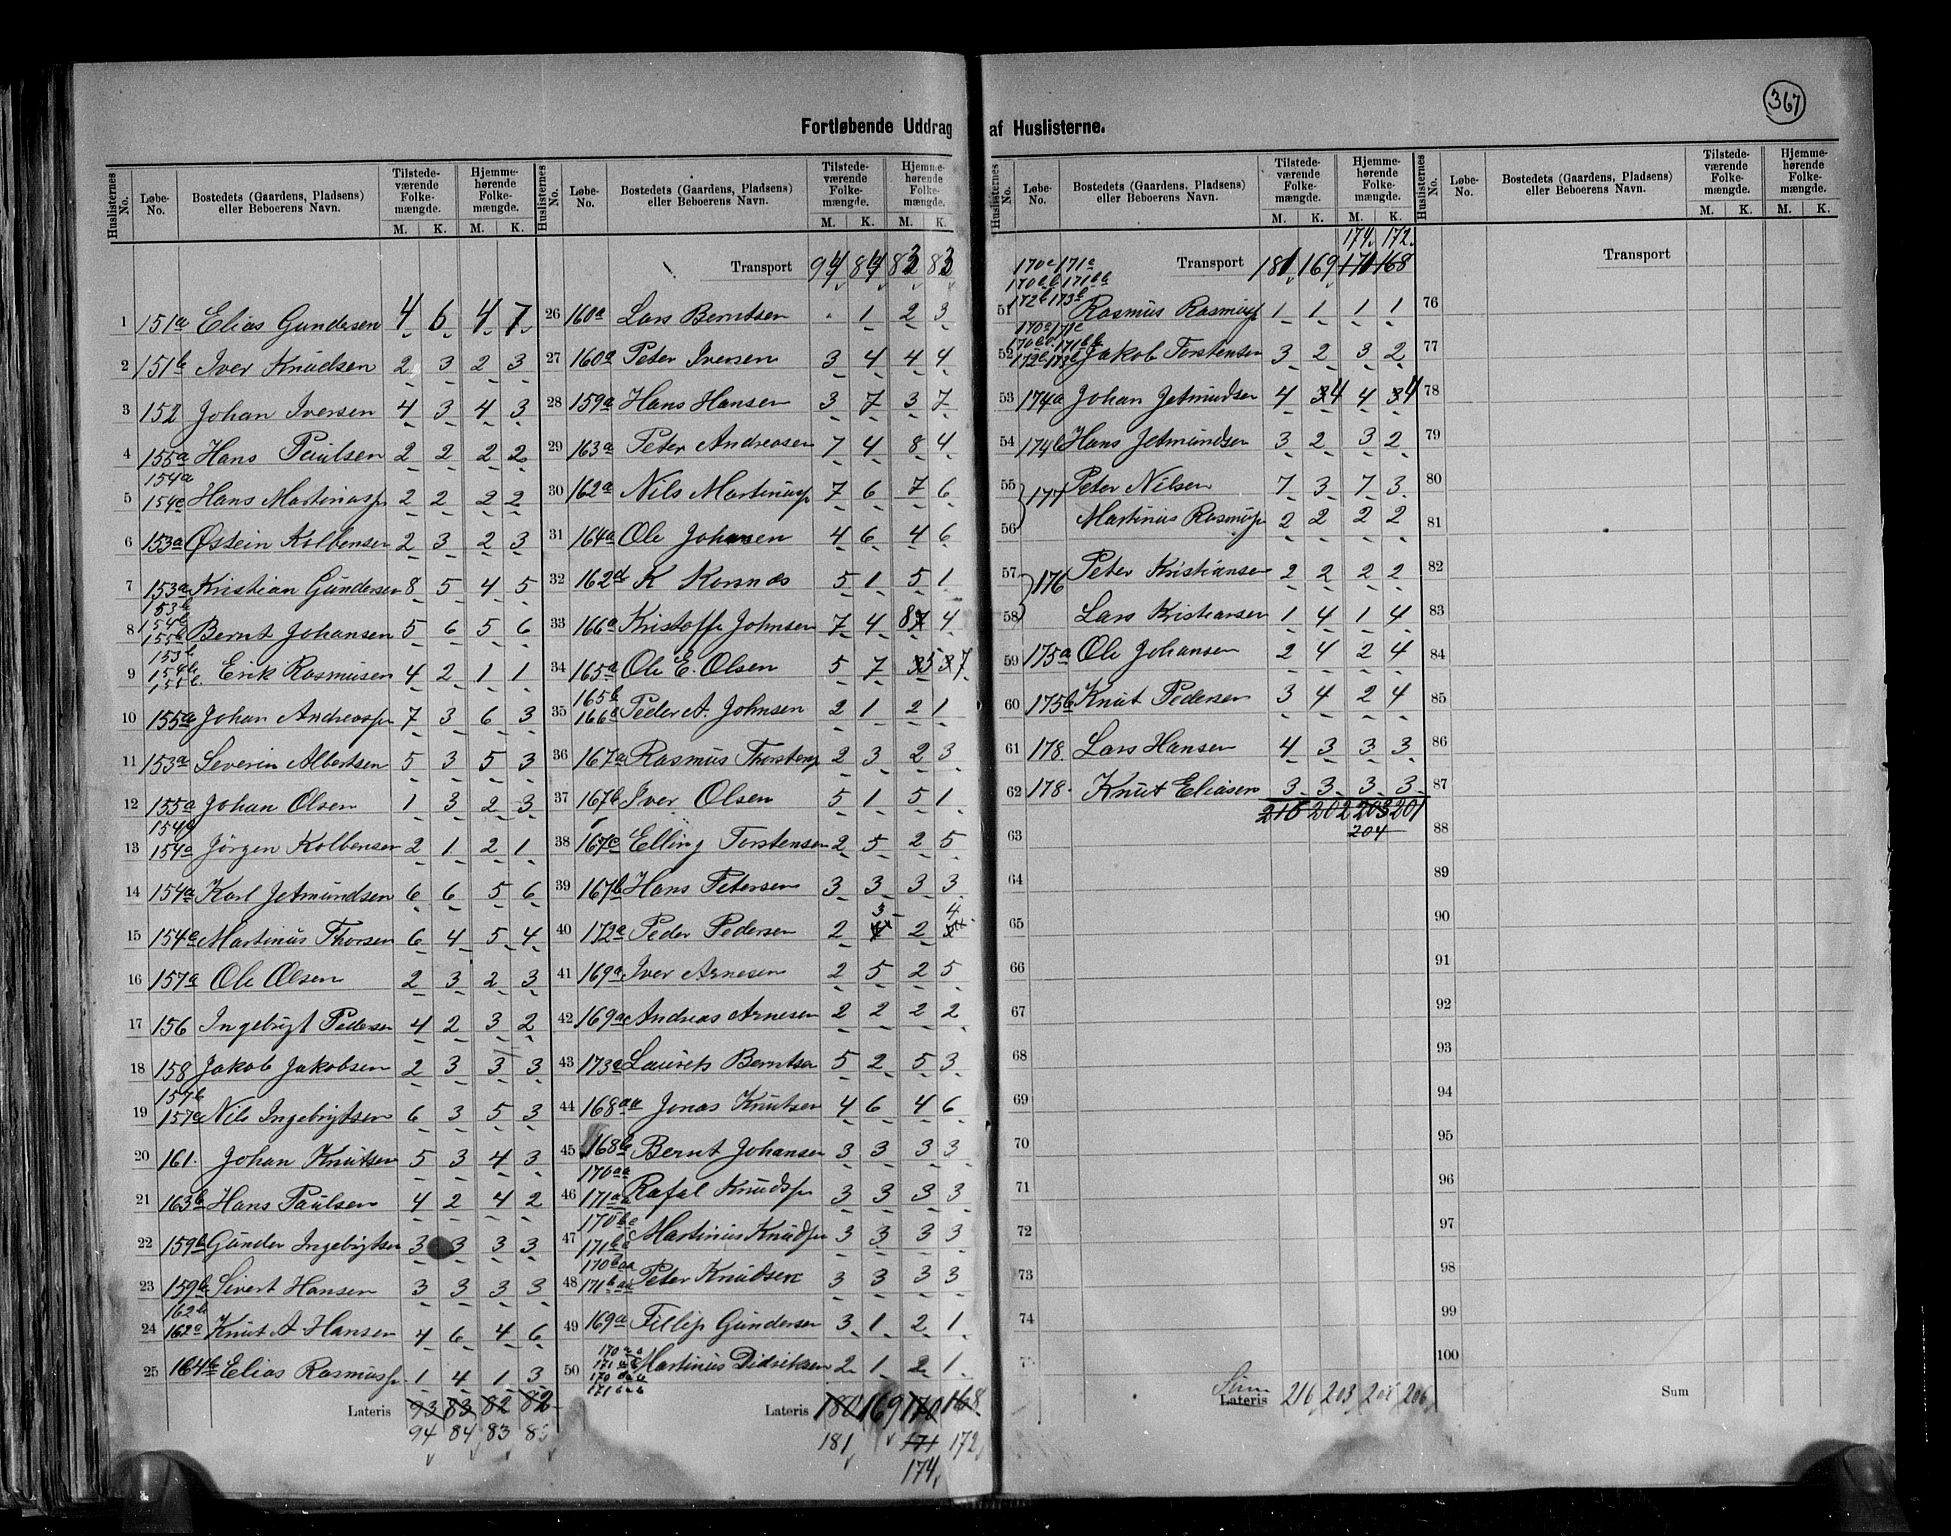 367
Fortløbende Uddrag af Huslisterne.
Huslisternes No. Løbe-No. Bostedets (Gaardens, Pladsens) eller Beboerens Navn. Tilstedeværende Folkemængde. M. K. Hjemmehørende Folkemængde. M. K.
1 151a Elias Gundersen 4 6 4 7
2 151b Iver Knudsen 2 3 2 3
3 152 Johan Iversen 4 3 4 3
4 155a Hans Paulsen 2 2 2 2
5 154a 154c Hans Martinusp 2 2 2 2
6 153a Østein Kolbensen 2 3 2 3
7 153a Kristian Gundersen 8 5 4 5
8 153b 154b 155b Bernt Johansen 5 6 5 6
9 153b 154b 155b Erik Rasmusen 4 2 1 1
10 155a Johan Andreasp 7 3 6 3
11 153a Severin Albertsen 5 3 5 3
12 155a Johan Olsen 1 3 2 3
13 154a 154a Jørgen Kolbensen 2 1 2 1
14 154a Karl Jetmundsen 6 6 5 6
15 154a Martinus Thorsen 6 4 5 4
16 157a Ole Olsen 2 3 2 3
17 156 Ingebrigt Pedersen 4 2 3 2
18 158 Jakob Jakobsen 2 3 3 3
19 157b 157a Nils Ingebrigtsen 6 3 5 3
20 161. Johan Knutsen 5 3 4 3
21 163b Hans Paulsen 4 2 4 2
22 159b Gunder Ingebrigtsen 3 3 3 3
23 159b Sivert Hansen 3 3 3 3
24 162b 162a Knut A Hansen 4 6 4 6
25 164b Elias Rasmusp. 1 4 1 3
Lateris 93 83 82 82
94 84 83 83
Huslisternes No. Løbe-No. Bostedets (Gaardens, Pladsens) eller Beboerens Navn. Tilstedeværende Folkemængde. M. K. Hjemmehørende Folkemængde. M. K.
Transport 94 84 83 83
26 160a Lars Berntsen . 1 2 3
27 160a Peter Iversen 3 4 4 4
28 159a Hans Hansen 3 7 3 7
29 163a Peter Andreasen 7 4 8 4
30 162a Nils Martinusp 7 6 7 6
31 164a Ole Johansen 4 6 4 6
32 162a K Korsnæs 5 1 5 1
33 166a Kristoffe Johnsen 7 4 8 4
34 165a Ole E. Olsen 5 7 5 7
35 165b 166c Peder A. Johnsen 2 1 2 1
36 167a Rasmus Thorstens 2 3 2 3
37 167b Iver Olsen 5 1 5 1
38 167c Elling Torstensen 2 5 2 5
39 167b Hans Petersen 3 3 3 3
40 172a Peder Pedersen 2 3 2 4
41 169a Iver Arnesen 2 5 2 5
42 169a Andreas Arnesen 2 2 2 2
43 173a Laurits Berntsen 5 2 5 3
44 168aa Jonas Knutsen 4 6 4 6
45 168b Bernt Johansen 3 3 3 3
46 170aa 171aa Rafal Knudsp 3 3 3 3
47 170ba 171ba Martinius Knudsp 3 3 3 3
48 170baa 171baa Peter Knudsen 3 3 3 3
49 169a Fillip Gundersen 3 1 2 1
50 Martinus Didriksen 2 1 2 1
Lateris 180 169 170 168
181 171 172
174
Huslisternes No. Løbe-No. Bostedets (Gaardens, Pladsens) eller Beboerens Navn. Tilstedeværende Folkemængde. M. K. Hjemmehørende Folkemængde. M. K.
174. 172.
Transport 181 169 171 168
51 170a 171a 170bb 171bb 172b 173b Rasmus Rasmusp 1 1 1 1
52 170c 171c 170bb 171bb 172b 173b Jakob Torstensen 3 2 3 2
53 174a Johan Jetmundsen 4 4 4 4
54 174b Hans Jetmundsen 3 2 3 2
55 177 Peter Nilsen 7 3 7 3
56 Martinus Rasmusp 2 2 2 2
57 176 Peter Kristiansen 2 2 2 2
58 Lars Kristiansen 1 4 1 4
59 175a Ole Johansen 2 4 2 4
60 175b Knut Pedersen 3 4 2 4
61 178. Lars Hansen 4 3 3 3
62 178. Knut Eliasen 3 3 3 3
215 202 203 201
204
63
64
65
66
67
68
69
70
71
72
73
74
Sum
Lateris 216 203 208 206
Huslisternes No. Løbe-No. Bostedets (Gaardens, Pladsens) eller Beboerens Navn. Tilstedeværende Folkemængde. M. K. Hjemmehørende Folkemængde. M. K.
Transport
76
77
78
79
80
81
82
83
84
85
86
87
88
89
90
91
92
93
94
95
96
97
98
99
100
Sum